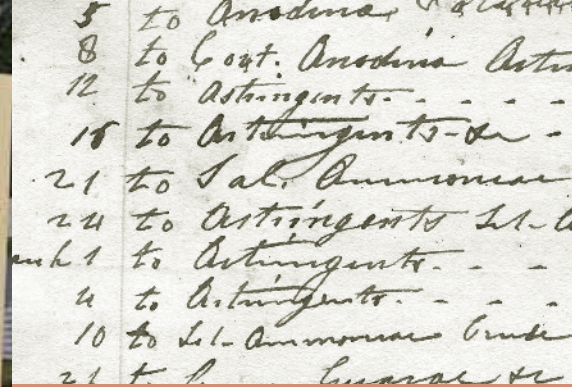 5 to Anodina
8 to Cort. Anodina Astri
12 to Astringents - - - -
15 to Astringents - &c -
21 to Sal. Ammoniac
24 to Astringents Sal-A
1 to Astringents - - -
4 to Astringents - - - -
10 to Sal-Ammoniac Crude
21 t &c